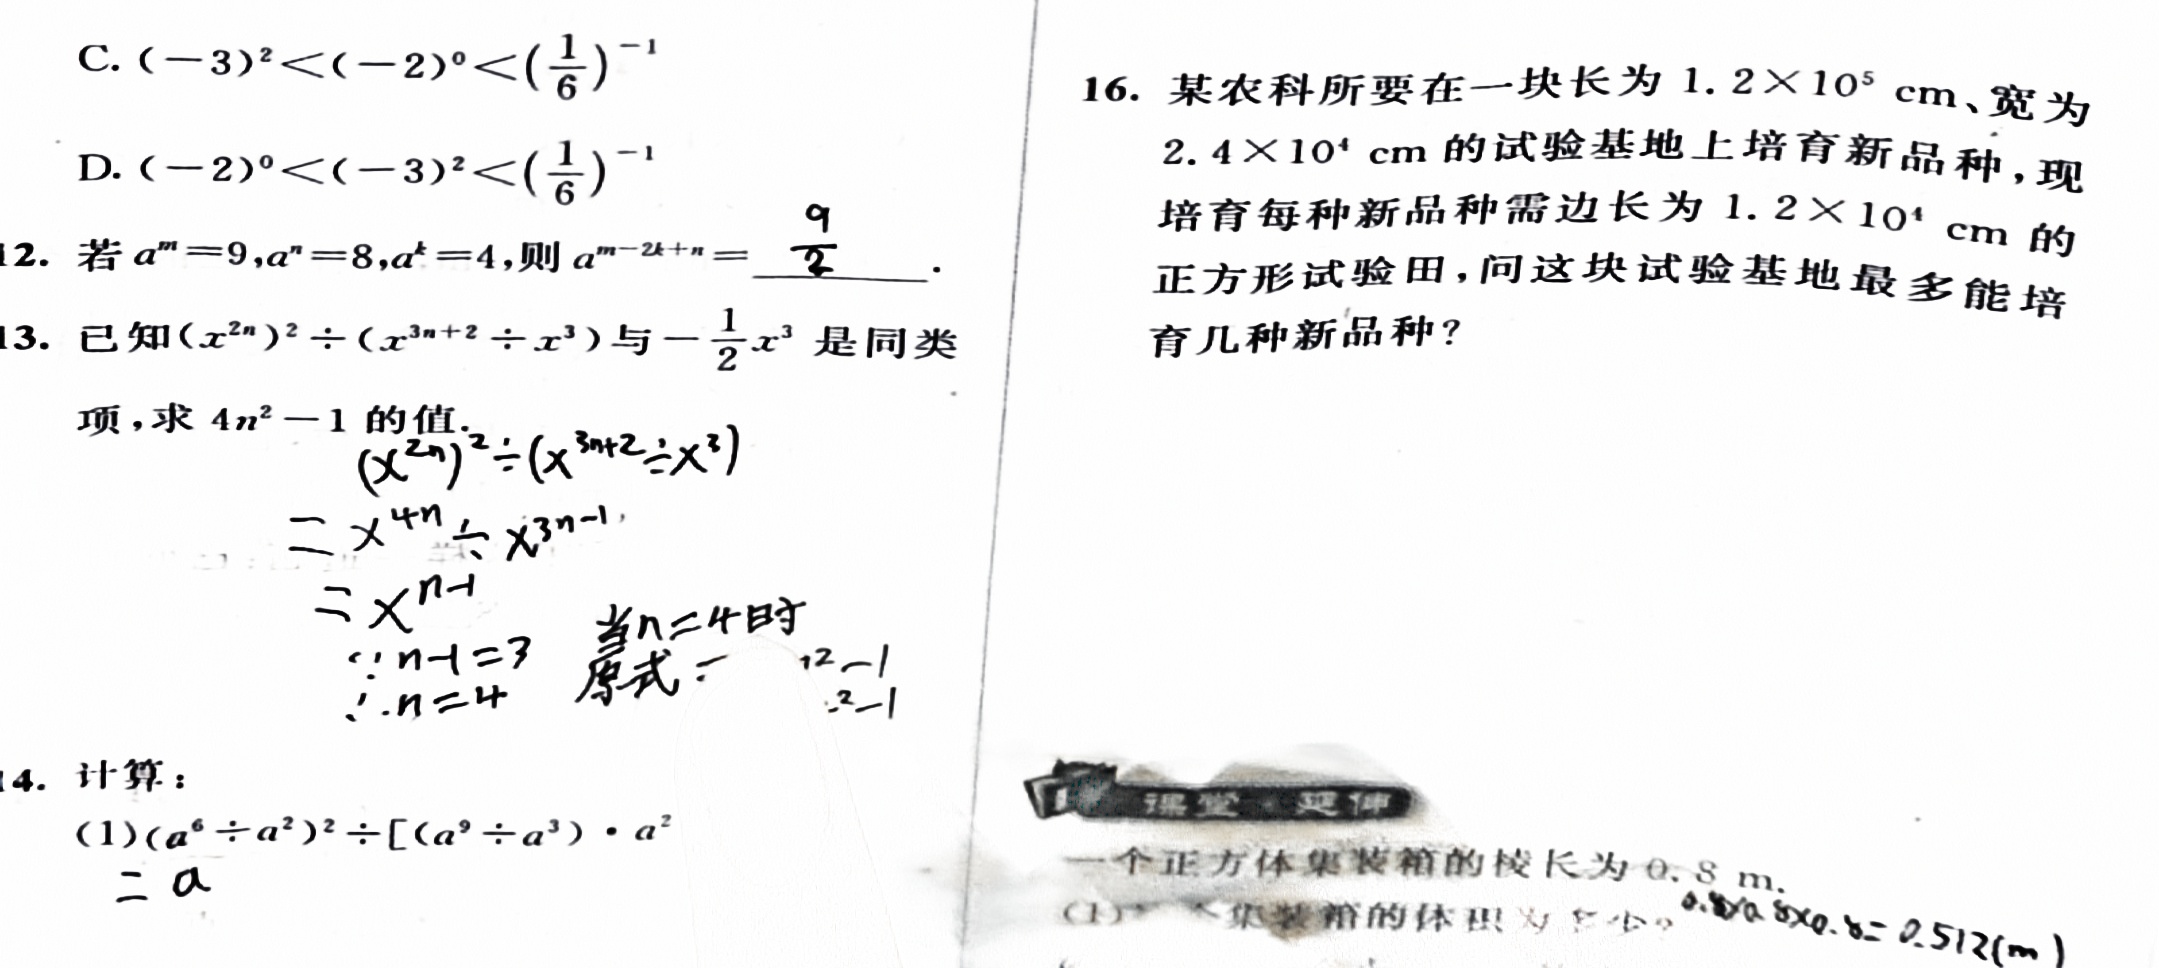 C. (−3)²<(−2)⁰<(1/6)⁻¹
D. (−2)⁰<(−3)²<(1/6)⁻¹
12. 若 aᵐ=9,aⁿ=8,aᵏ=4,则 aᵐ⁻²ᵏ⁺ⁿ= 9/2 .
13. 已知(x²ⁿ)²÷(x³ⁿ⁺²÷x³)与−1/2x³ 是同类
项,求 4n²−1 的值.
(x²ⁿ)²÷(x³ⁿ⁺²÷x³)
= x⁴ⁿ÷x³ⁿ⁻¹
= xⁿ⁻¹
∵n-1=3
∴n=4
当n=4时
原式=
²-1
²-1
14. 计算:
(1)(a⁶÷a²)²÷[(a⁹÷a³)·a²
= a
16. 某农科所要在一块长为 1.2×10⁵ cm、宽为
2.4×10⁴ cm 的试验基地上培育新品种,现
培育每种新品种需边长为 1.2×10⁴ cm 的
正方形试验田,问这块试验基地最多能培
育几种新品种?
课堂·延伸
一个正方体集装箱的棱长为 0.8 m.
(1) 集装箱的体积为多少? 0.8×0.8×0.8=0.512(m)